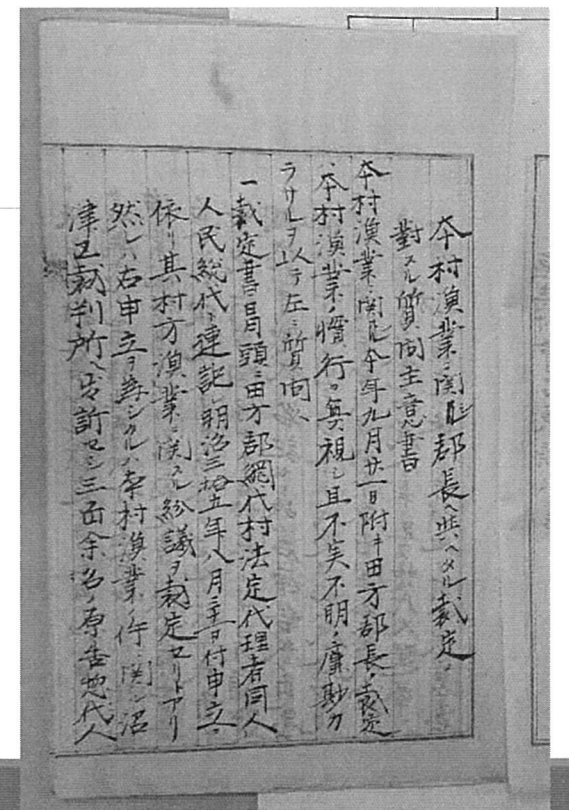 本村漁業ニ関シ郡長ヘ與ヘタル裁定ニ
對スル質問主意書
本村漁業ニ関シ今年九月廿一日附キ田方郡長ノ裁定
本村漁業ノ慣行ヲ無視シ且不実不明ノ廉尠カ
ラサルヲ以テ左ニ質問ス
一裁定書冒頭ニ田方郡網代村法定代理者同人
人民総代ト連記シ明治三拾五年八月三十一日付申立ニ
依リ其村方漁業ニ関スル紛議ヲ裁定セリトアリ
然レハ右申立ヲ為シタルハ本村漁業ノ件ニ関シ沼
津区裁判所ヘ出訴セシ三百余名ノ原告惣代人